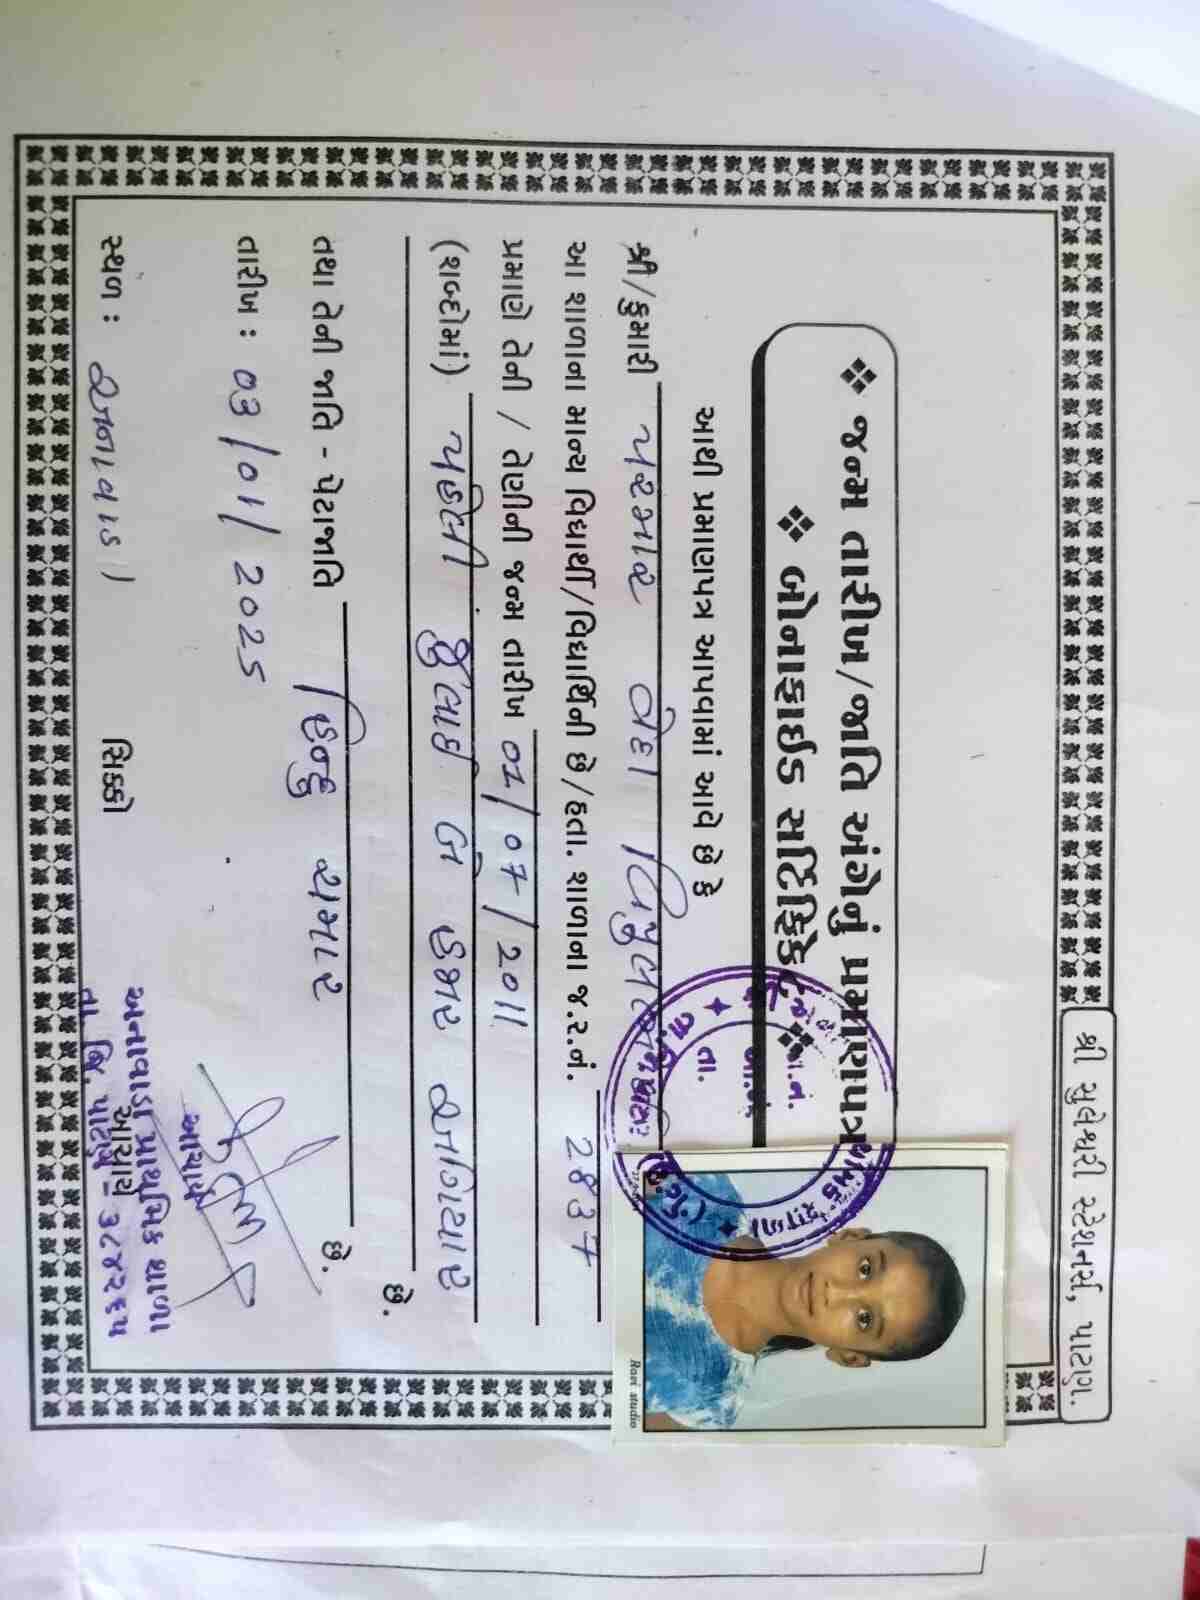 શ્રી સુલેશ્વરી સ્ટેશનર્સ, પાટણ.
❖ જન્મ તારીખ/જાતિ અંગેનું પ્રમાણપત્ર
❖ બોનાફાઈડ સર્ટિફિકેટ ❖
આથી પ્રમાણપત્ર આપવામાં આવે છે કે
શ્રી/કુમારી પરમાર વેદા વિપુલ
આ શાળાના માન્ય વિદ્યાર્થી/વિદ્યાર્થિની છે/હતા. શાળાના જ.ર.નં. 2837
પ્રમાણે તેની / તેણીની જન્મ તારીખ 01/07/2011
(શબ્દોમાં) પહેલી જુલાઈ બે હજાર અગિયાર
છે.
તથા તેની જાતિ - પેટાજાતિ હિન્દુ ચમાર છે.
તારીખ : 03/01/2025
સ્થળ : અનાવાડા
સિક્કો
આચાર્ય
આચાર્ય
અનાવાડા પ્રાથમિક શાળા
તા. જિ. પાટણ - ૩૮૪૨૬૫
Ravi studio